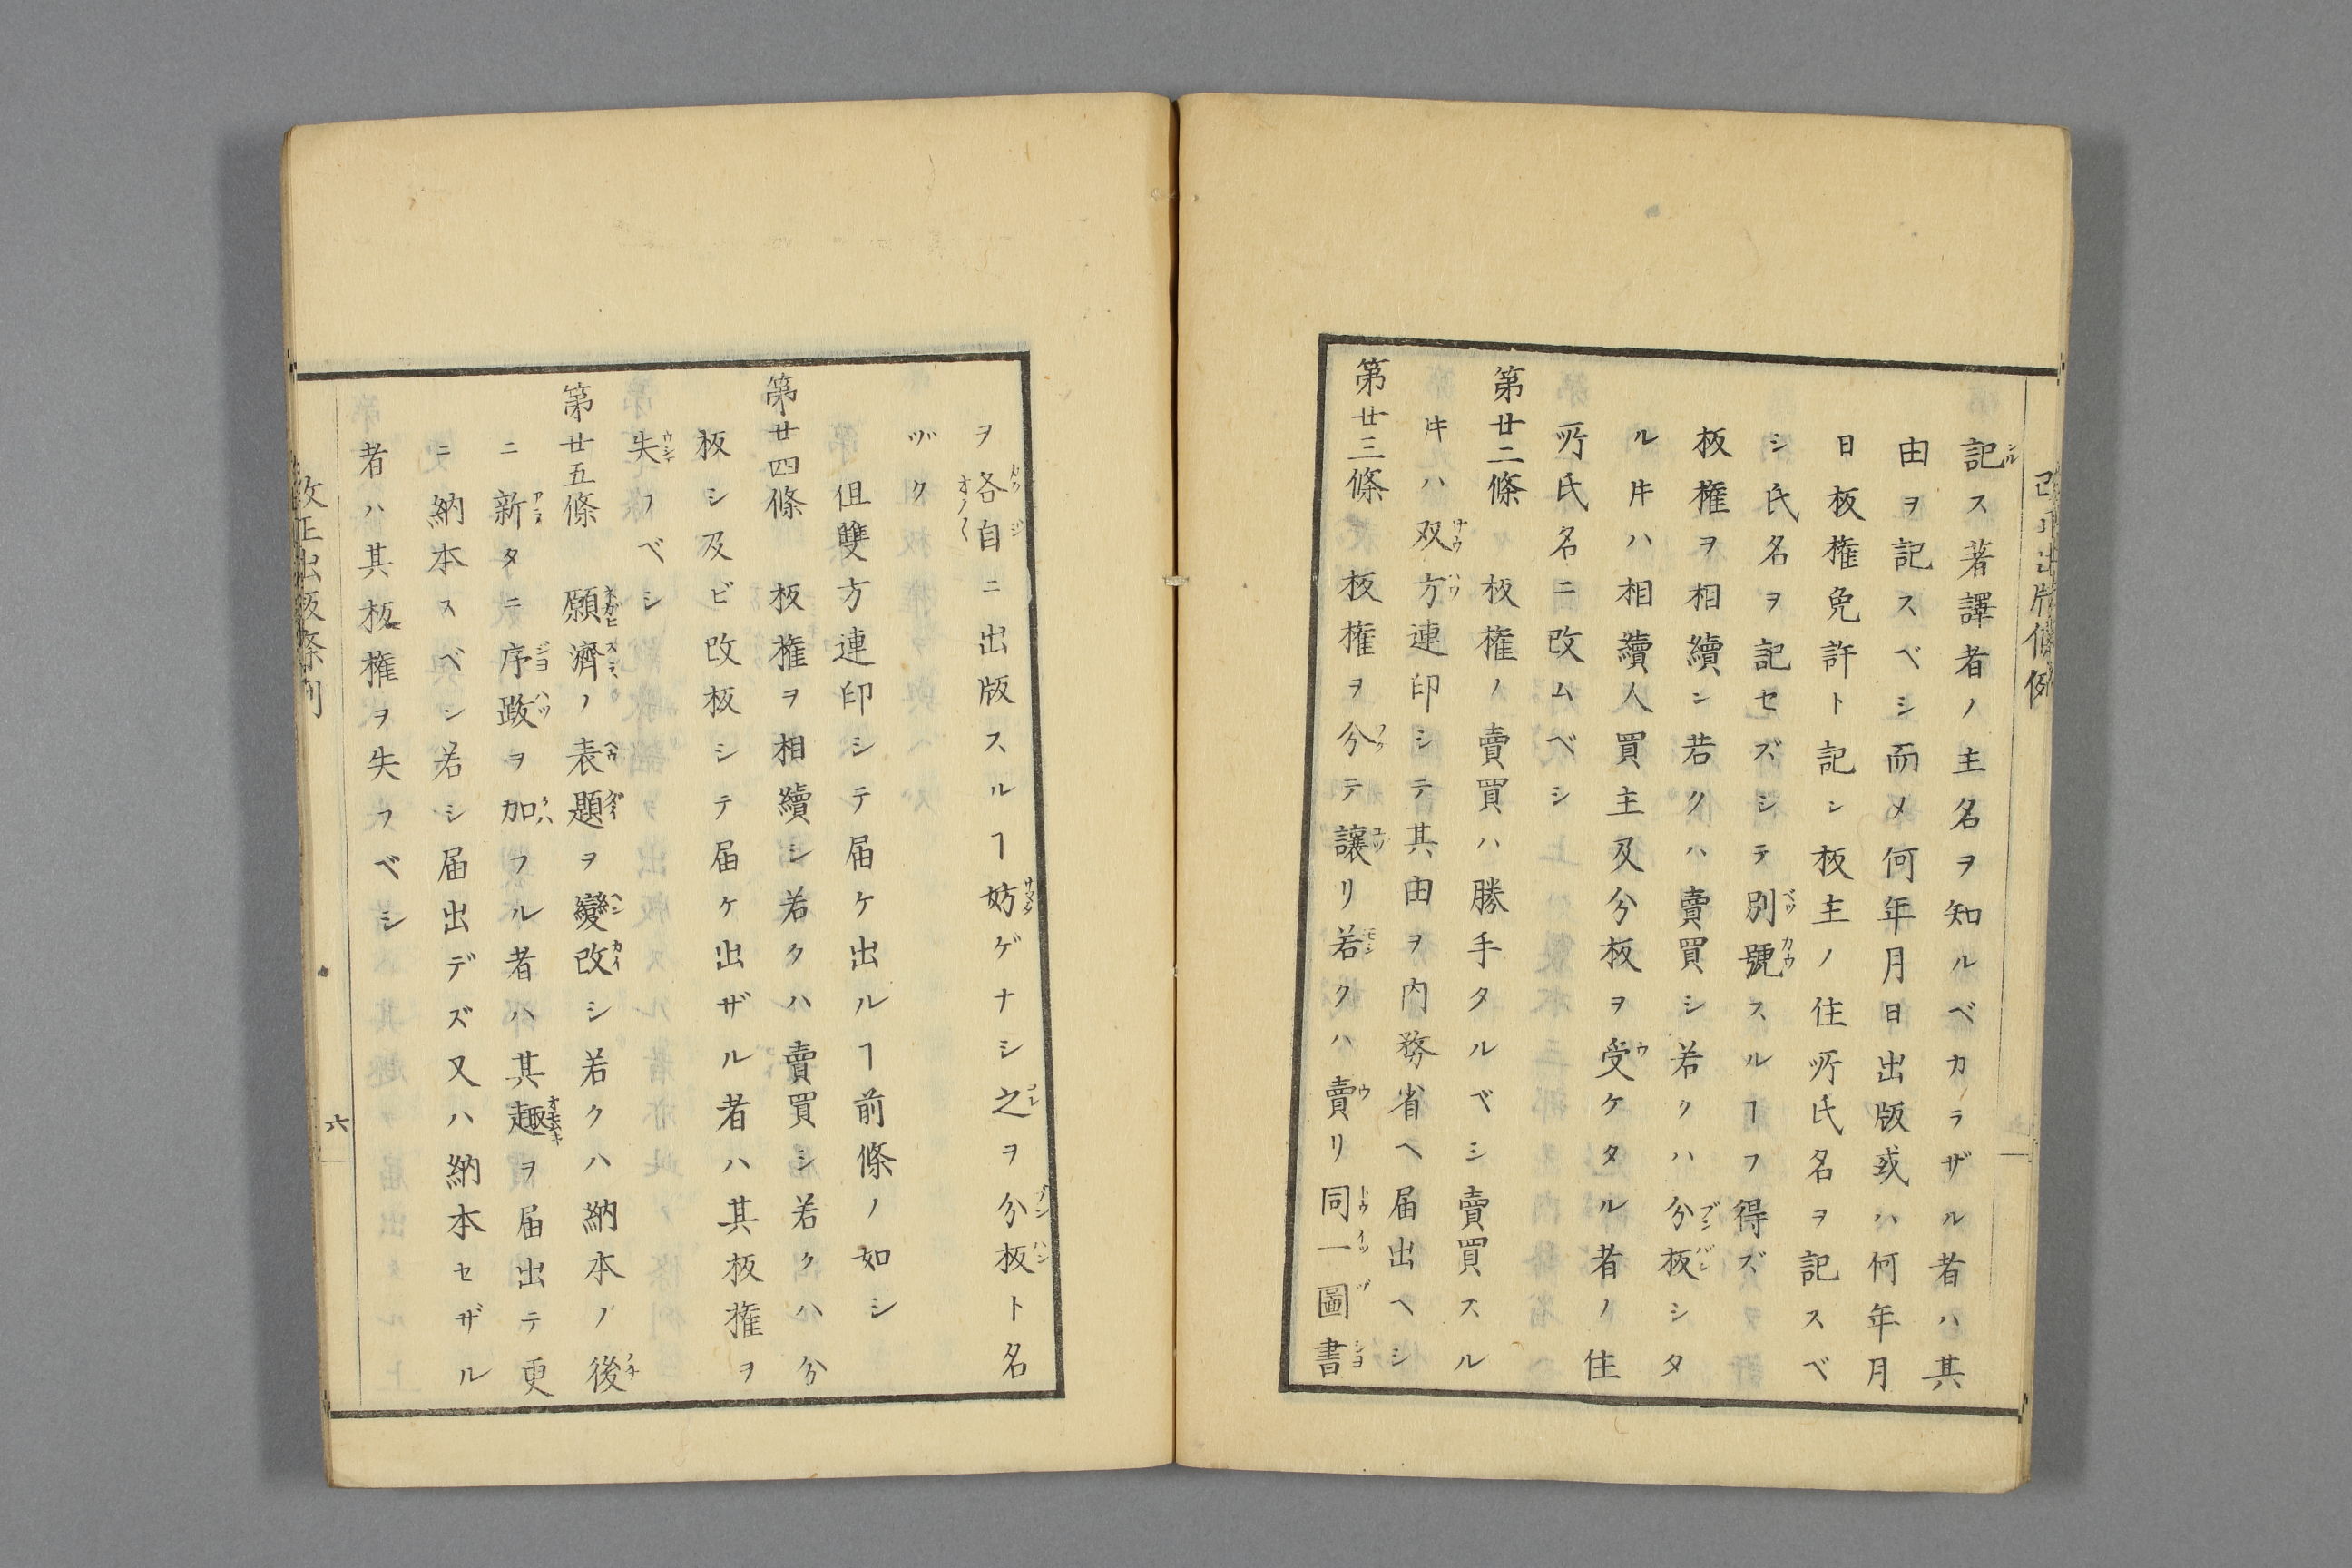 記ス著譯者ノ主名ヲ知ルベカラザル者ハ其
由ヲ記スベシ而メ何年月日出版或ハ何年月
日板権免許ト記シ板主ノ住所氏名ヲ記スベ
シ氏名ヲ記セズシテ別號スルヿヲ得ズ
板権ヲ相續シ若クハ賣買シ若クハ分板シタ
ル𪜈ハ相續人買主及分板ヲ受ケタル者ノ住
所氏名ニ改ムベシ
第廿二條 板権ノ賣買ハ勝手タルベシ賣買スル
𪜈ハ双方連印シテ其由ヲ内務省ヘ届出ヘシ
第廿三條 板権ヲ分テ讓リ若クハ賣リ同一圖書
ヲ各自ニ出版スルヿ妨ゲナシ之ヲ分板ト名
ヅク
伹雙方連印シテ届ケ出ルヿ前條ノ如シ
第廿四條 板権ヲ相續シ若クハ賣買シ若クハ分
板シ及ビ改板シテ届ケ出ザル者ハ其板権ヲ
失フベシ
第廿五條 願濟ノ表題ヲ變改シ若クハ納本ノ後
ニ新タニ序跋ヲ加フル者ハ其趣ヲ届出テ更
ニ納本スベシ若シ届出デズ又ハ納本セザル
者ハ其板権ヲ失フベシ
改正出板條例
六